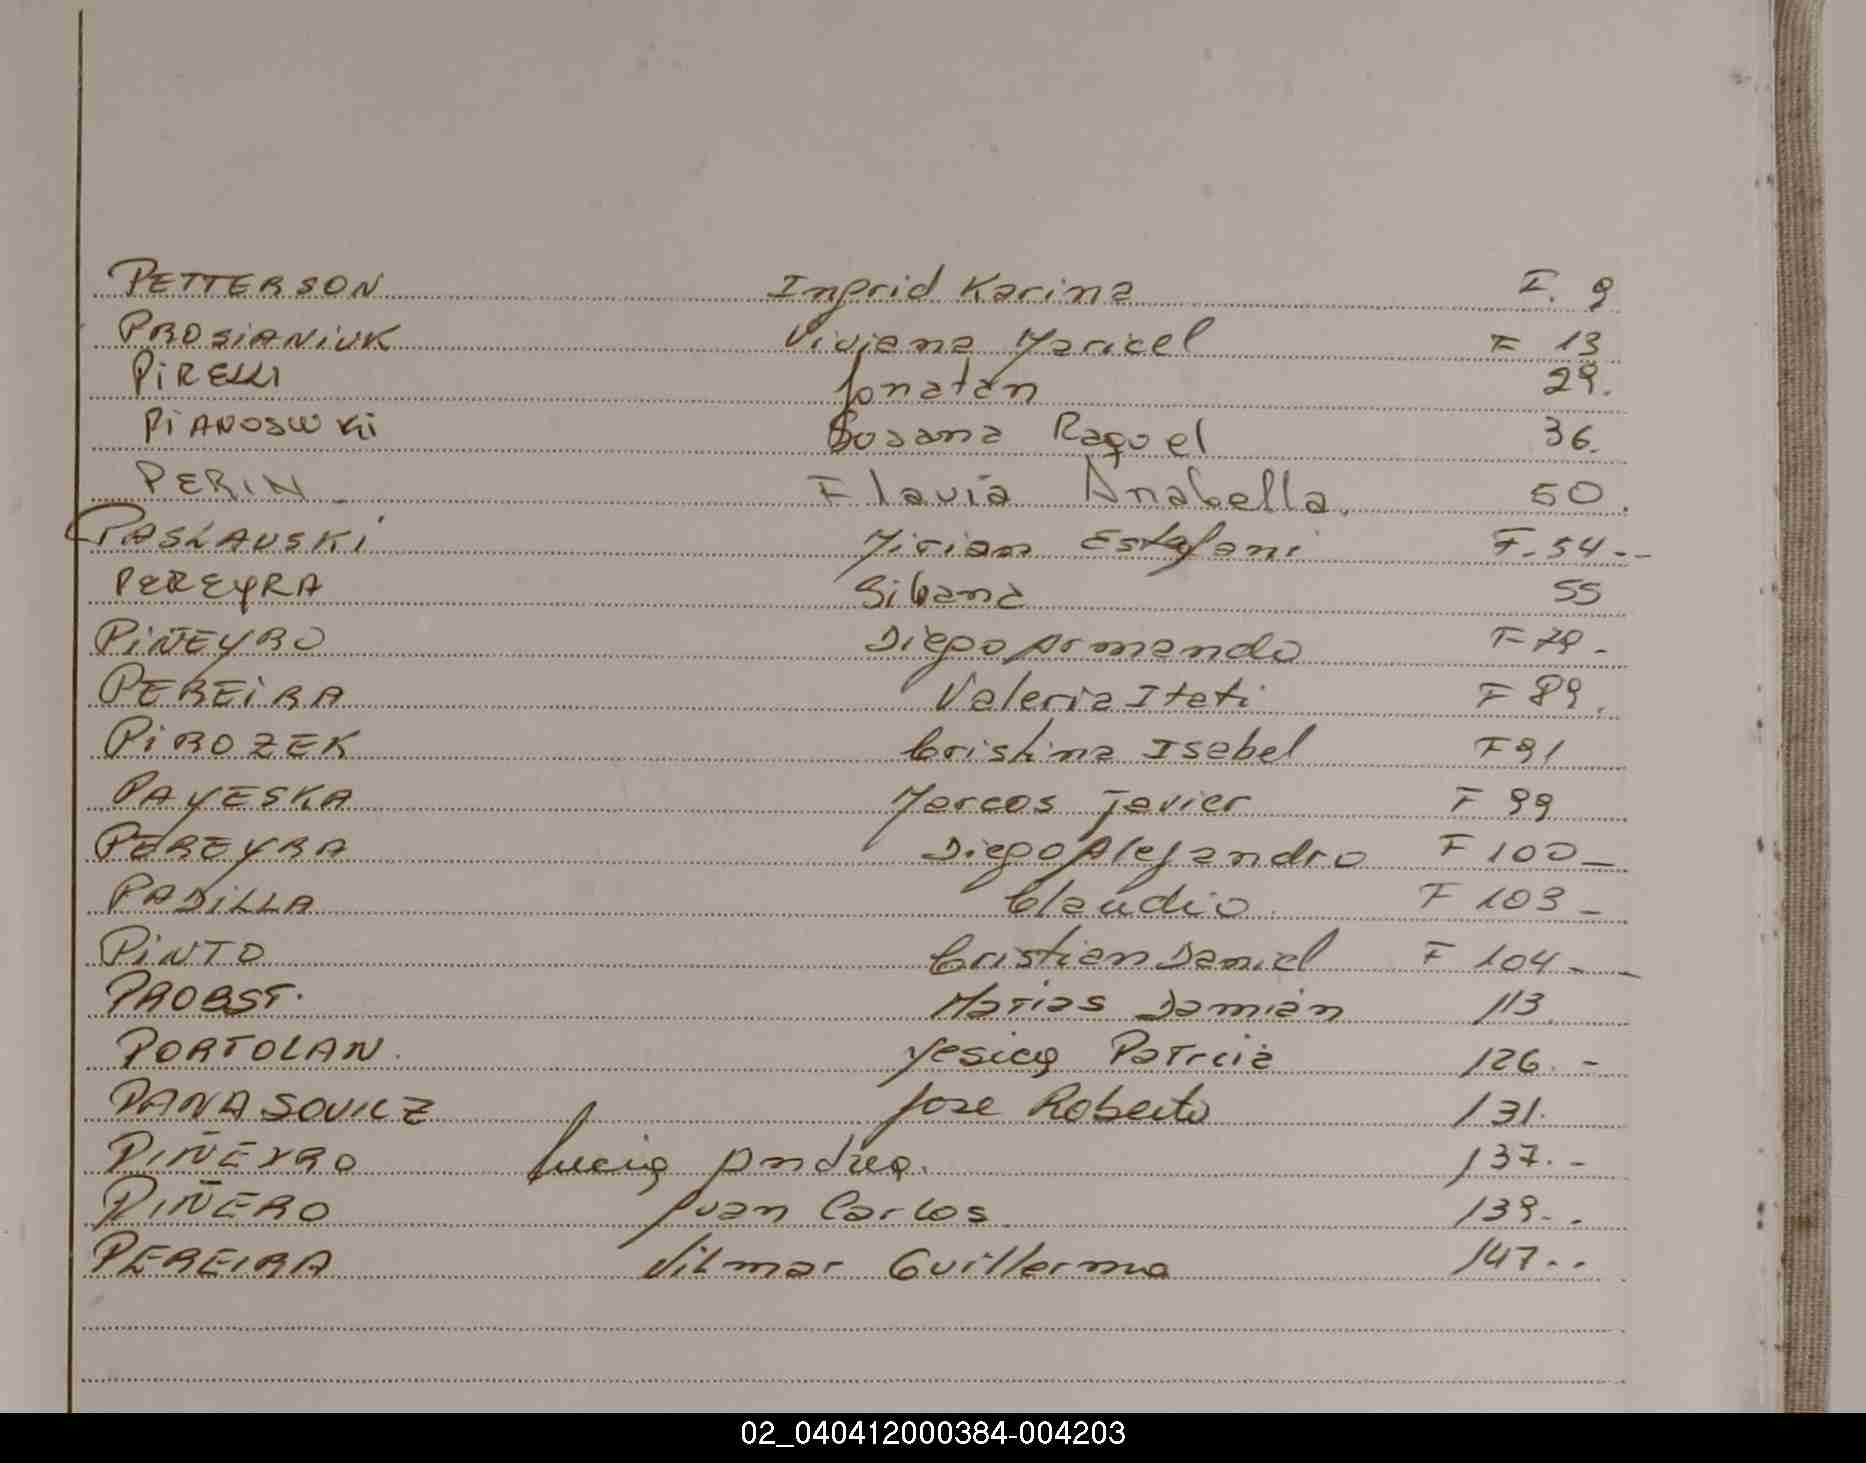 PETTERSON Ingrid Karina F. 9
PROSIANIUK Viviana Maricel F 13
PIRELLI Jonatan 29.
PIANOSWKI Sosana Raquel 36.
PERIN Flavia Anabella. 50.
PASLAUSKI Mirian Estefani F. 54 - -
PEREYRA Silvana 55
PIÑEYRO Diego Armando F 79 -
PEREIRA Valeria Itati F 89.
PIROZEK Cristina Isabel F 91
PAYESKA Marcos Javier F 99
PEREYRA Diego Alejandro F 100 -
PADILLA Claudio. F 103 -
PINTO Cristian Daniel F 104 - -
PROBST. Matias Damián 113.
PORTOLAN. Yesica Patricia 126. -
PANASOVICZ Jose Roberto 131.
PIÑEYRO Lucia Andrea. 137. -
PIÑERO Juan Carlos. 139 - .
PEREIRA Vilmar Guillermo 147 - .
02_040412000384-004203